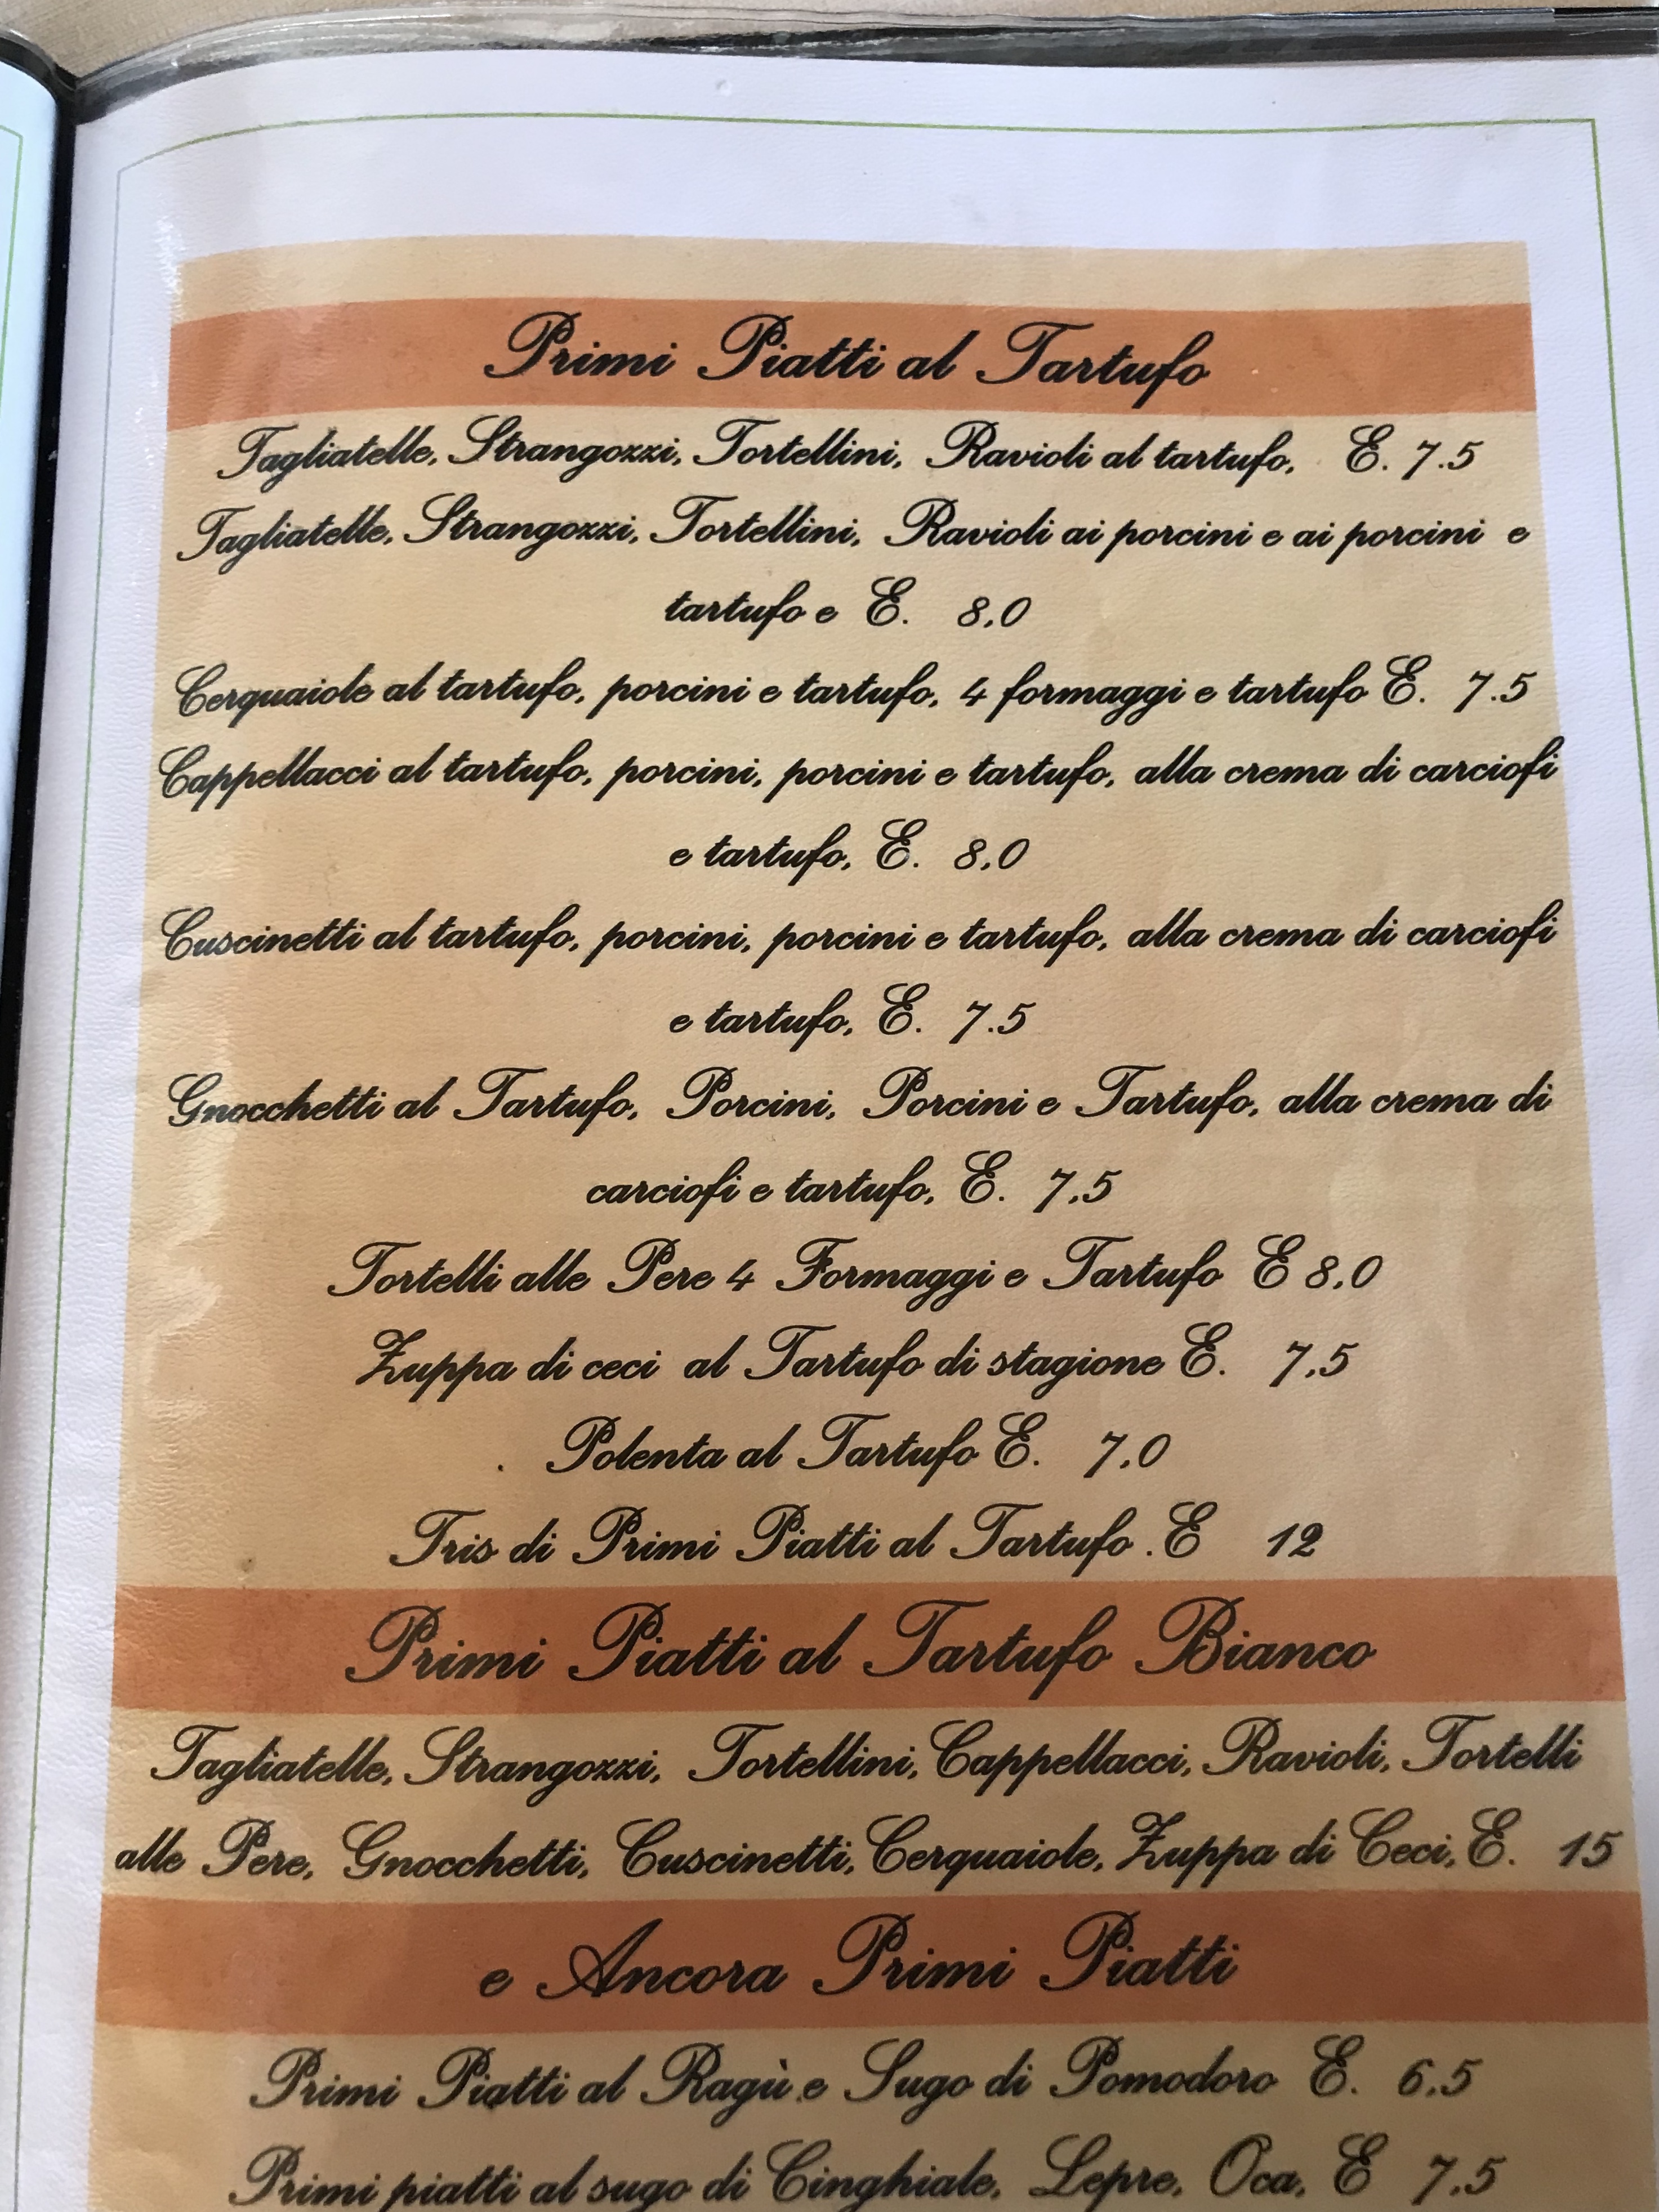 Primi Piatti al Tartufo
Tagliatelle, Strangozzi, Tortellini, Ravioli al tartufo, E. 7.5
Tagliatelle, Strangozzi, Tortellini, Ravioli ai porcini e ai porcini e
tartufo e E. 8,0
Cerquaiole al tartufo, porcini e tartufo, 4 formaggi e tartufo E. 7.5
Cappellacci al tartufo, porcini, porcini e tartufo, alla crema di carciofi
e tartufo, E. 8,0
Cuscinetti al tartufo, porcini, porcini e tartufo, alla crema di carciofi
e tartufo, E. 7.5
Gnocchetti al Tartufo, Porcini, Porcini e Tartufo, alla crema di
carciofi e tartufo, E. 7,5
Tortelli alle Pere 4 Formaggi e Tartufo E 8,0
Zuppa di ceci al Tartufo di stagione E. 7,5
. Polenta al Tartufo E. 7,0
Tris di Primi Piatti al Tartufo .E 12
Primi Piatti al Tartufo Bianco
Tagliatelle, Strangozzi, Tortellini, Cappellacci, Ravioli, Tortelli
alle Pere, Gnocchetti, Cuscinetti, Cerquaiole, Zuppa di Ceci, E. 15
e Ancora Primi Piatti
Primi Piatti al Ragù e Sugo di Pomodoro E. 6,5
Primi piatti al sugo di Cinghiale, Lepre, Oca, E 7,5